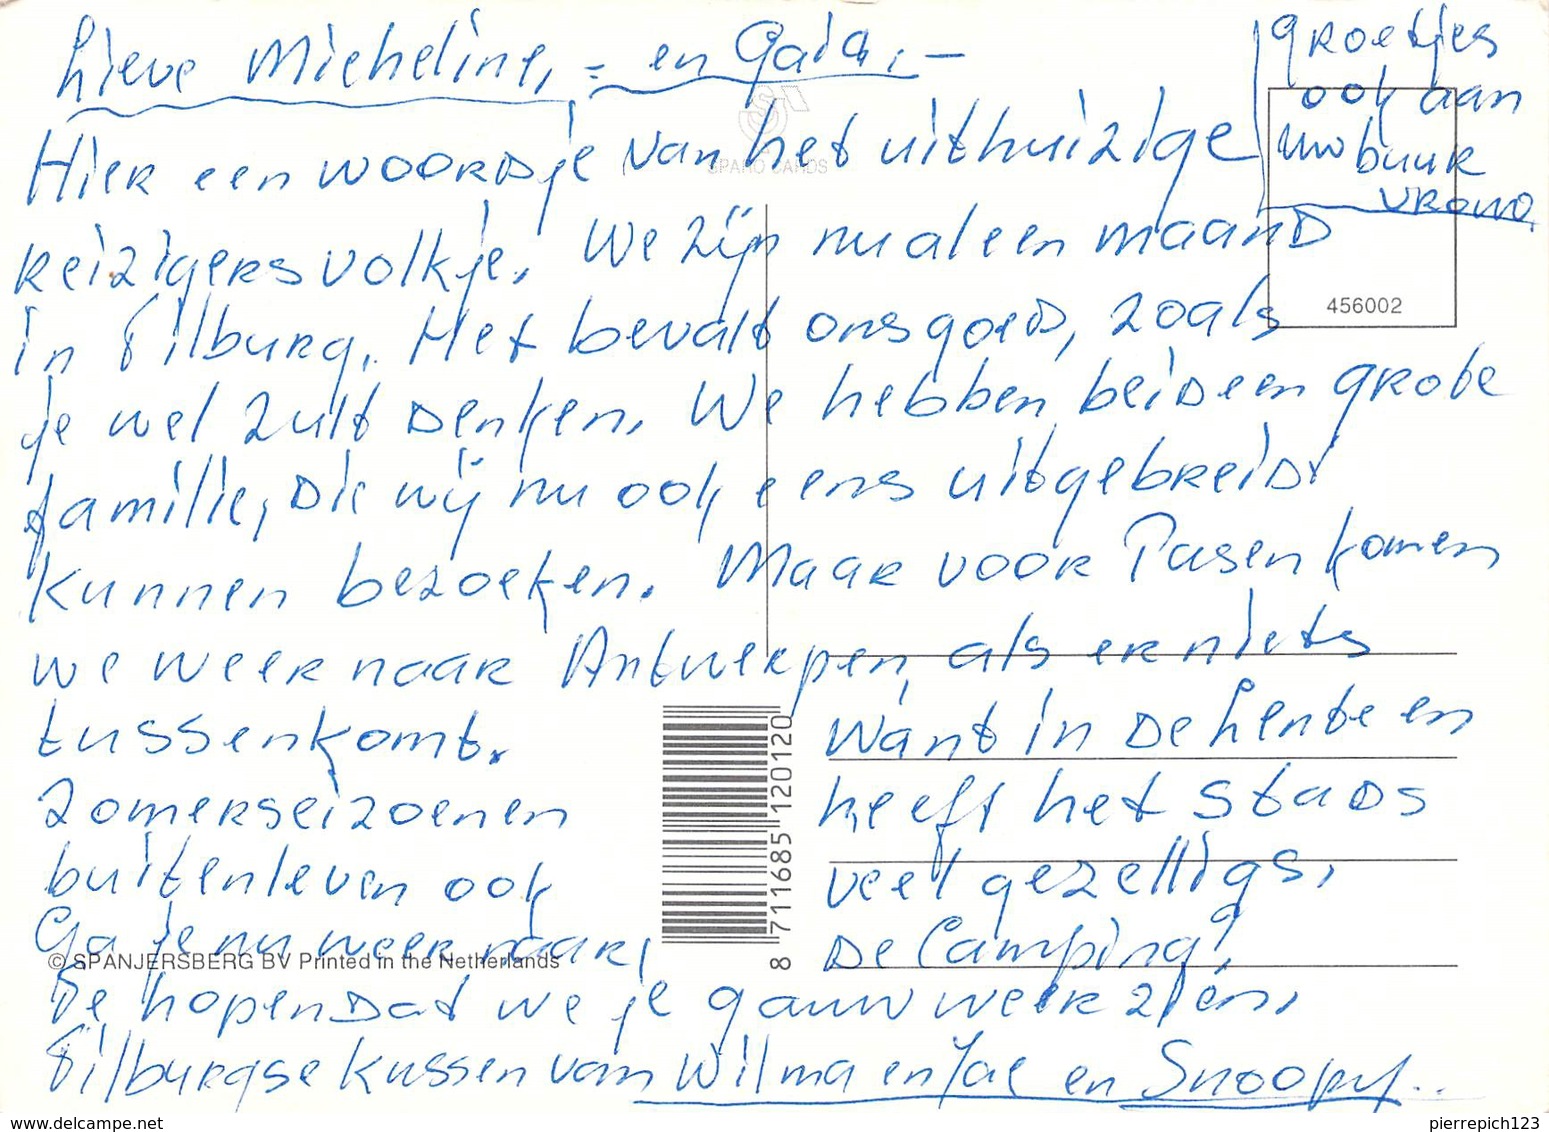 Lieve Micheline, = en Gaia, —
Hier een woordje van het uithuizige
reizigersvolkje. We zijn nu al een maand
in Tilburg. Het bevalt ons goed, zoals
je wel zult denken. We hebben beid een grote
familie, die wij nu ook eens uitgebreid
kunnen bezoeken. Maar voor Pasen komen
we weer naar Antwerpen, als er niets
tussenkomt. Want in de Lente en
Zomerseizoenen heeft het stads
buitenleven ook veel gezelligs,
Ga je nu weer naar, De Camping?
We hopen dat we je gauw weer zien,
Tilburgse kussen van Wilma en Jac en Snoopy..
groetjes
ook aan
uw buur
vrouw
SPARO CARDS
456002
8 711685 120120
© SPANJERSBERG BV Printed in the Netherlands
www.delcampe.net
pierrepich123